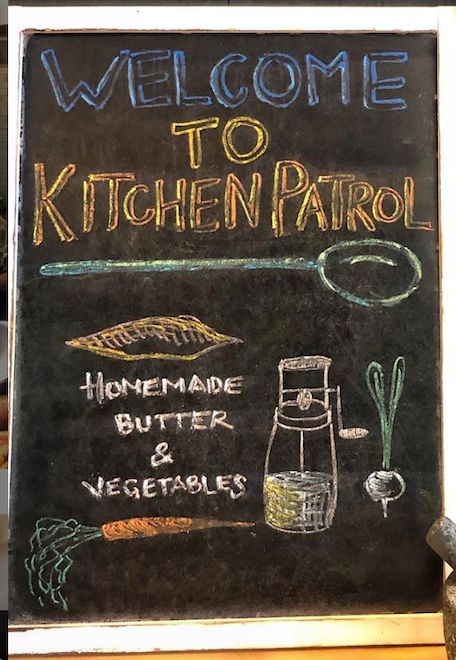 WELCOME
TO
KITCHEN PATROL
HOMEMADE
BUTTER
&
VEGETABLES